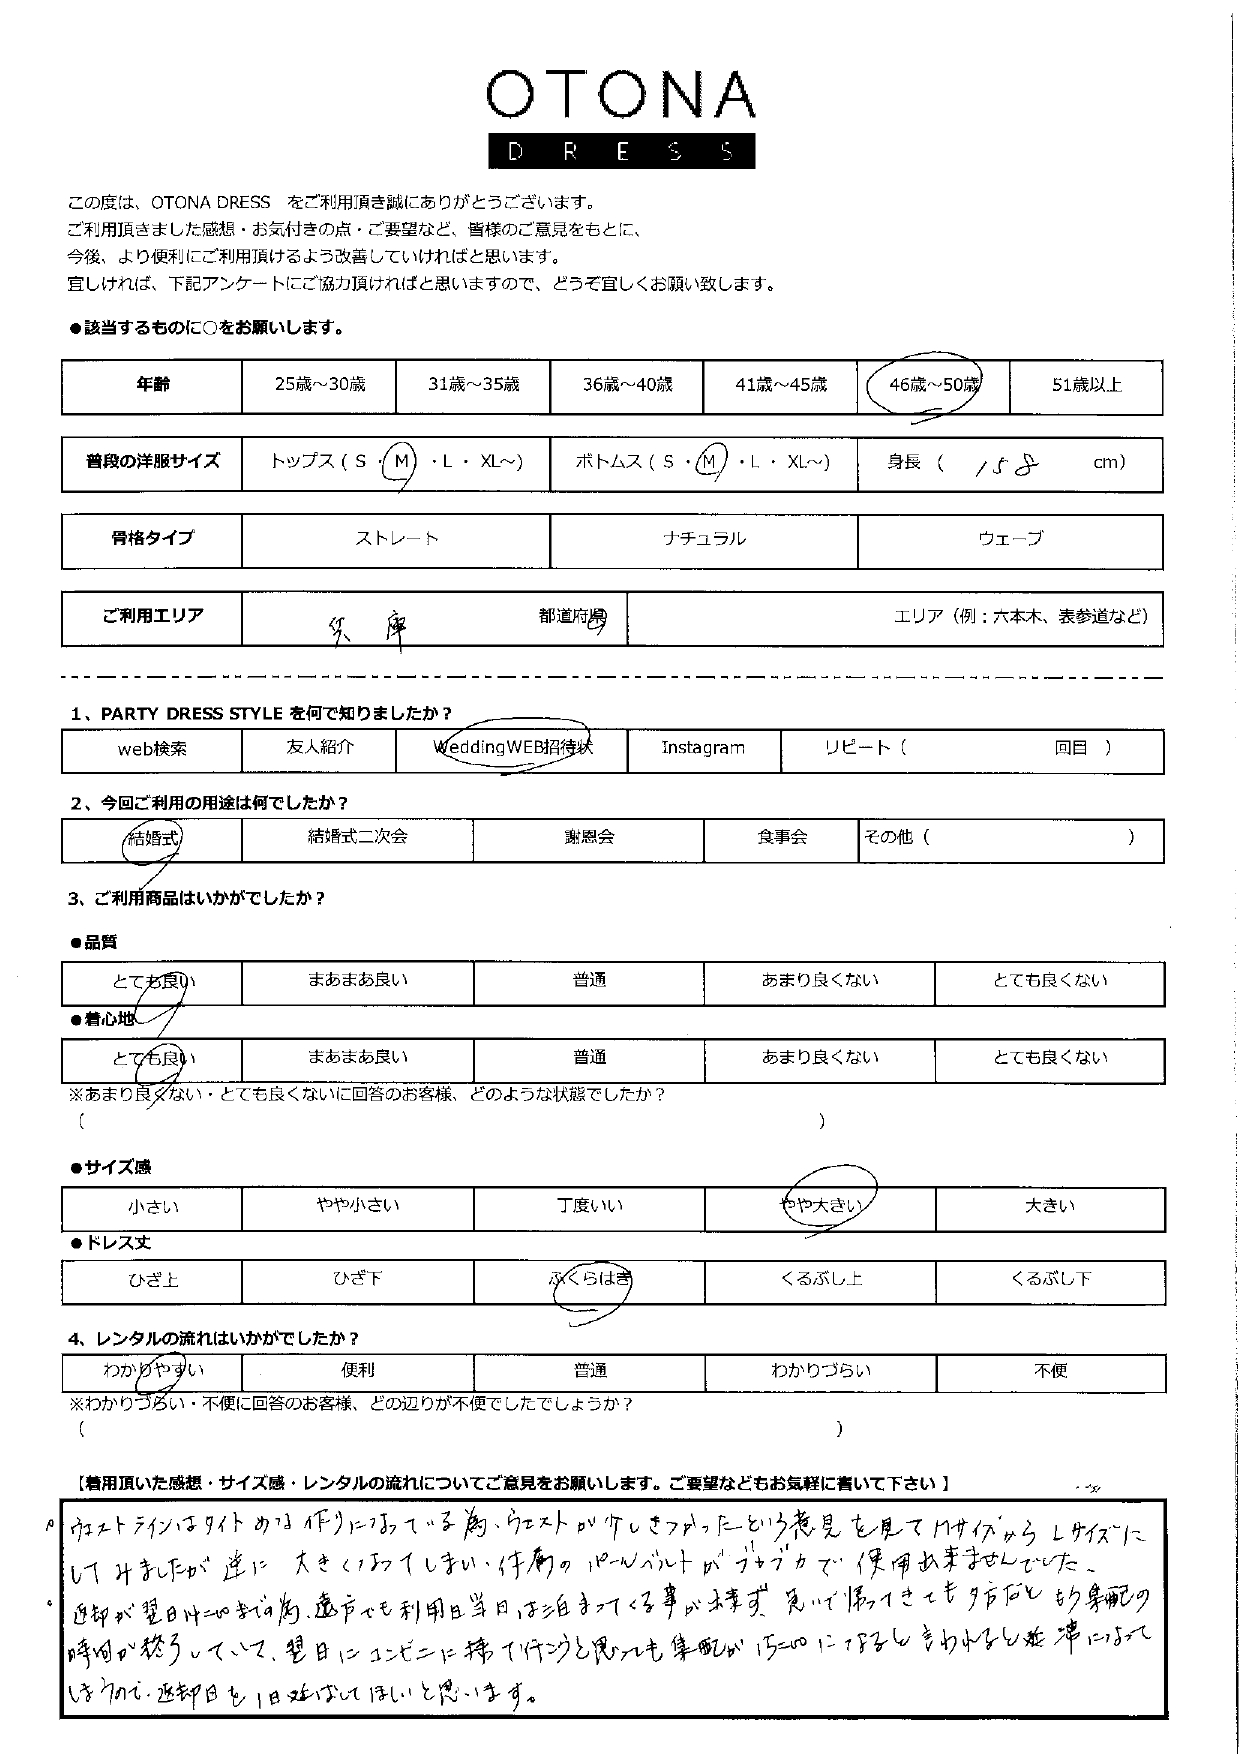 OTONA
DRESS
この度は、OTONA DRESS をご利用頂き誠にありがとうございます。
ご利用頂きました感想・お気付きの点・ご要望など、皆様のご意見をもとに、
今後、より便利にご利用頂けるよう改善していければと思います。
宜しければ、下記アンケートにご協力頂ければと思いますので、どうぞ宜しくお願い致します。
●該当するものに○をお願いします。
年齢 25歳～30歳 31歳～35歳 36歳～40歳 41歳～45歳 46歳～50歳 51歳以上
普段の洋服サイズ トップス（S・M・L・XL～） ボトムス（S・M・L・XL～） 身長（ 158 cm）
骨格タイプ ストレート ナチュラル ウェーブ
ご利用エリア 兵庫 都道府県 エリア（例：六本木、表参道など）
1、PARTY DRESS STYLE を何で知りましたか？
web検索 友人紹介 WeddingWEB招待状 Instagram リピート（ 回目 ）
2、今回ご利用の用途は何でしたか？
結婚式 結婚式二次会 謝恩会 食事会 その他（ ）
3、ご利用商品はいかがでしたか？
●品質
とても良い まあまあ良い 普通 あまり良くない とても良くない
●着心地
とても良い まあまあ良い 普通 あまり良くない とても良くない
※あまり良くない・とても良くないに回答のお客様、どのような状態でしたか？
（ ）
●サイズ感
小さい やや小さい 丁度いい やや大きい 大きい
●ドレス丈
ひざ上 ひざ下 ふくらはぎ くるぶし上 くるぶし下
4、レンタルの流れはいかがでしたか？
わかりやすい 便利 普通 わかりづらい 不便
※わかりづらい・不便に回答のお客様、どの辺りが不便でしたでしょうか？
（ ）
【着用頂いた感想・サイズ感・レンタルの流れについてご意見をお願いします。ご要望などもお気軽に書いて下さい】
ウエストラインはタイトめな作りになっている為、ウエストが少しきつかったという意見を見てMサイズからLサイズに
してみましたが逆に大きくなってしまい、付属のパールベルトがブカブカで使用出来ませんでした。
返却が翌日 までの為、遠方でも利用日当日は泊まってくる事が出来ず、急いで帰ってきても夕方だともう集配の
時間が終了していて、翌日にコンビニに持って行こうと思っても集配が15:00になると言われると延滞になって
しまうので、返却日を1日延ばしてほしいと思います。